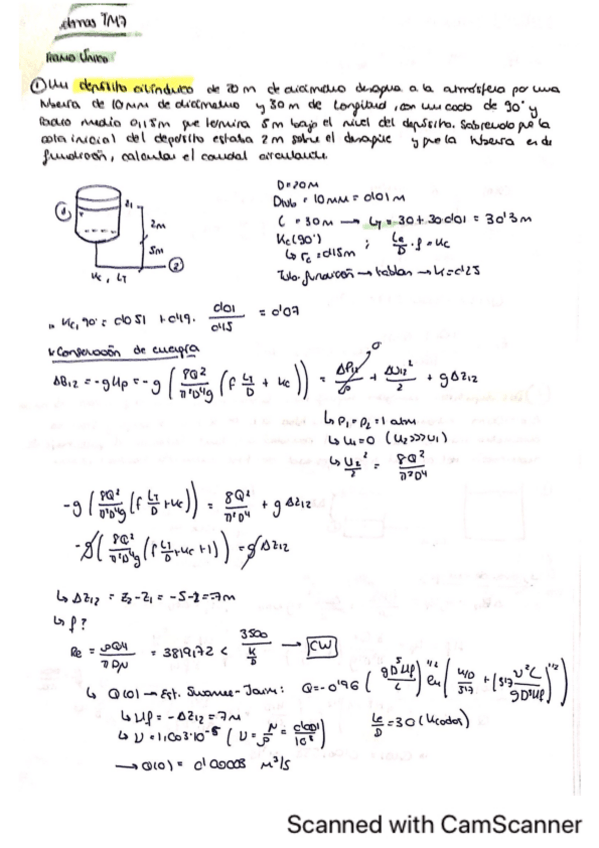 TM7
Tramo Único
① Un depósito cilíndrico de 20 m de diámetro desagua a la atmósfera por una
tubería de 10 mm de diámetro y 30 m de longitud, con un codo de 90° y
radio medio 0,15 m que termina 5 m bajo el nivel del depósito. Sabiendo que la
cota inicial del depósito estaba 2 m sobre el desagüe y que la tubería es de
fundición, calcular el caudal circulante.
D = 20 m
D tub = 10 mm = 0'01 m
L = 30 m → LT = 30 + 30·0'01 = 30'3 m
Kc (90°)
↳ rc = 0'15 m ; Le/D · f = Kc
Tub. fundición → tablas → K = 0'25
① z1
2m
5m
②
Kc, LT
Kc, 90° = 0'051 + 0'19 · 0'01/0'15 = 0'07
Conservación de energía
ΔB12 = -gHp = -g (8Q²/π²D⁴g (f LT/D + Kc)) = ΔP12/ρ + Δv12²/2 + gΔz12
0
↳ P1 = P2 = 1 atm
↳ u1 = 0 (u2 >>> u1)
↳ u2²/2 = 8Q²/π²D⁴
-g (8Q²/π²D⁴g (f LT/D + Kc)) = 8Q²/π²D⁴ + gΔz12
-g (8Q²/π²D⁴g (f LT/D + Kc + 1)) = gΔz12
↳ Δz12 = z2 - z1 = -5-2 = -7m
↳ f?
Re = ρQ4/πDμ = 3819,72 < 3500/(K/D) → CW
↳ Q(0) → Est. Swamee-Jain: Q = -0'96 (gD⁵Hp/L)^1/2 ln (K/D/3'7 + (3'17 ν²L/gD³Hp)^1/2)
↳ Hp = -Δz12 = 7m
Le/D = 30 (codos)
↳ ν = 1,003·10⁻⁶ (ν = μ/ρ = 0'001/10³)
→ Q(0) = 0'00008 m³/s
Scanned with CamScanner